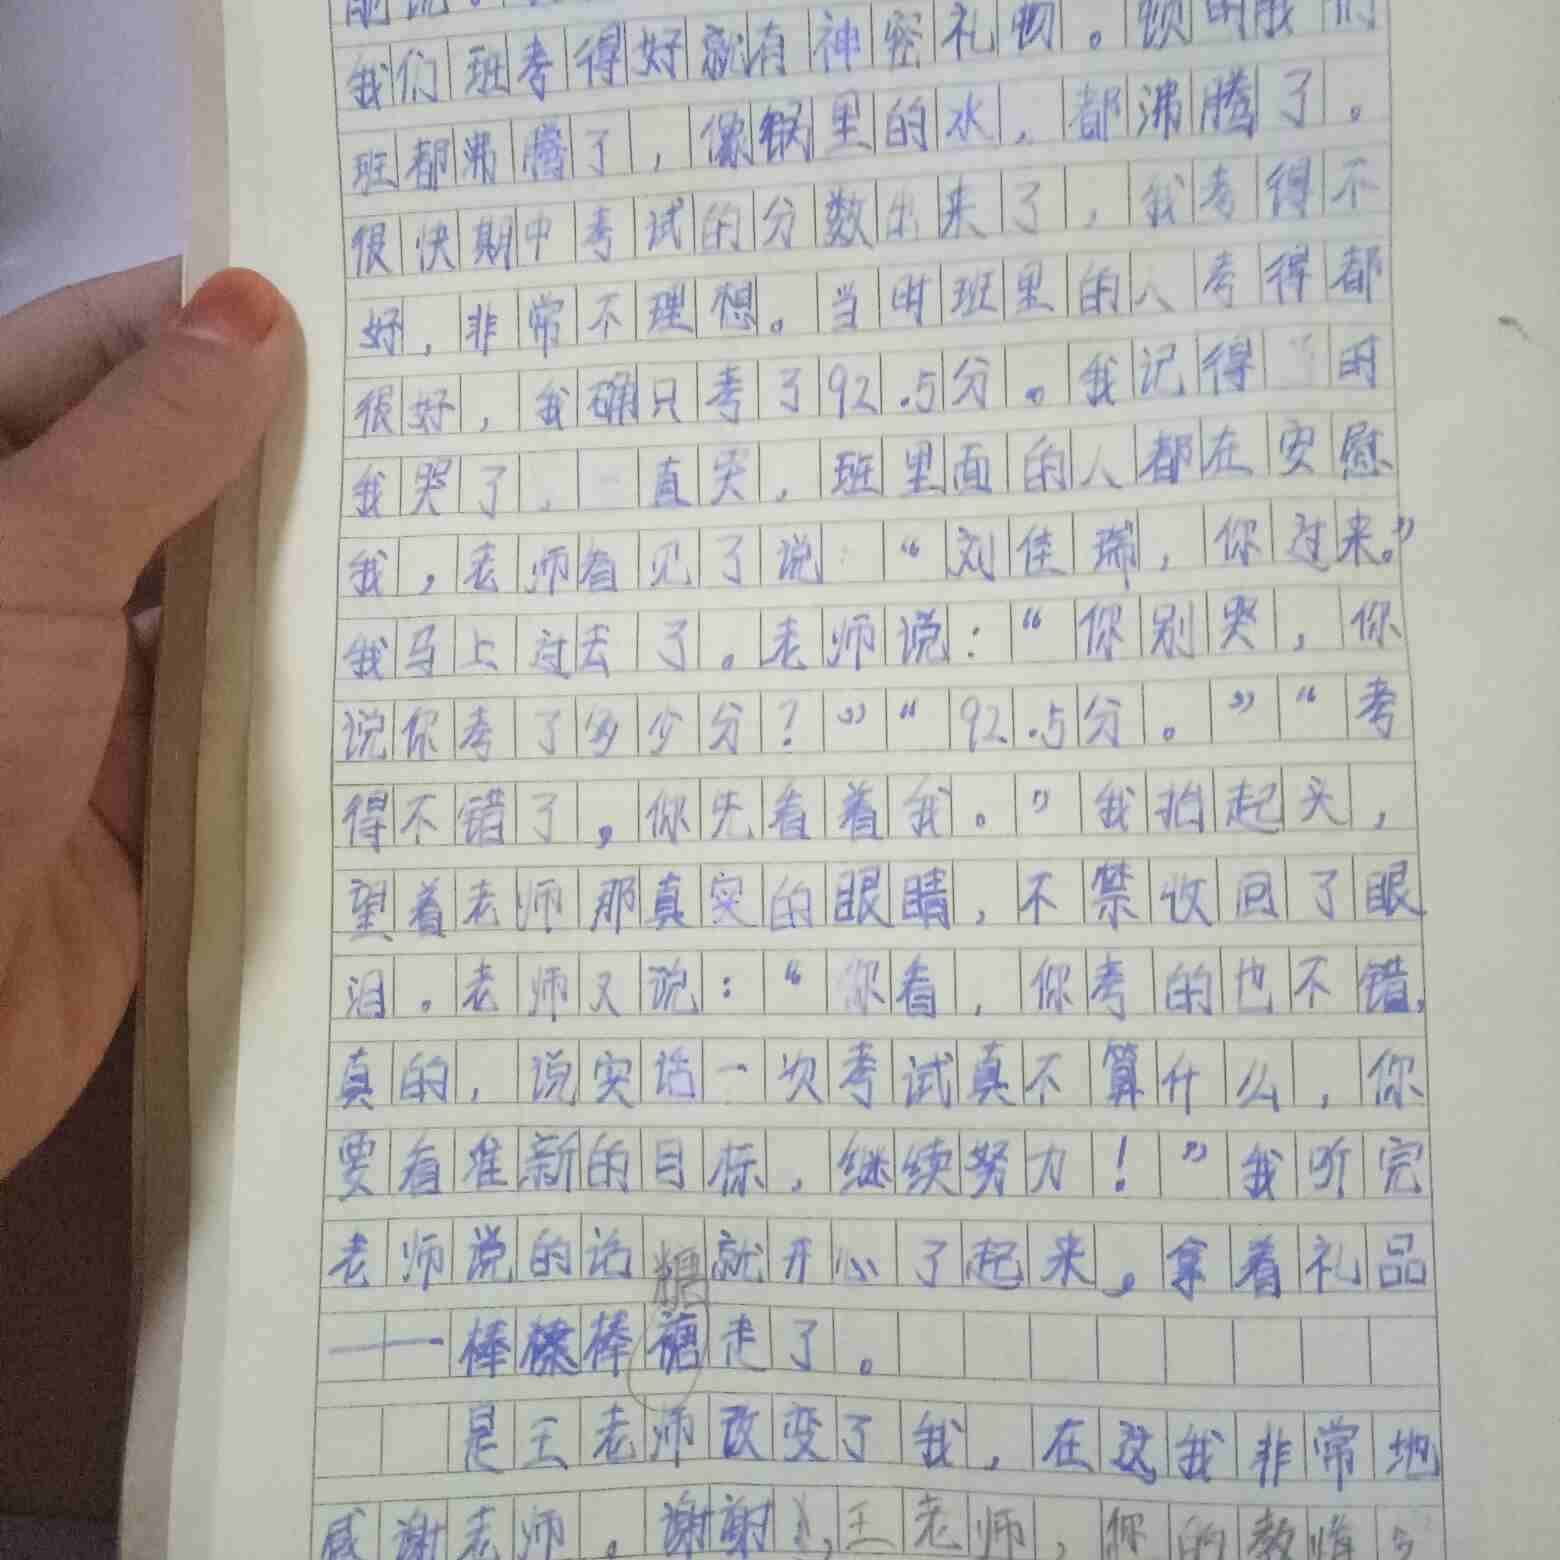 我们班考得好就有神密礼物。顿时我们
班都沸腾了，像锅里的水，都沸腾了。
很快期中考试的分数出来了，我考得不
好，非常不理想。当时班里的人考得都
很好，我确只考了92.5分。我记得当时
我哭了，一直哭，班里面的人都在安慰
我，老师看见了说：“刘佳瑞，你过来。”
我马上过去了。老师说：“你别哭，你
说你考了多少分？”“92.5分。”“考
得不错了，你先看着我。”我抬起头，
望着老师那真实的眼睛，不禁收回了眼
泪。老师又说：“你看，你考的也不错，
真的，说实话一次考试真不算什么，你
要有准新的目标，继续努力！”我听完
老师说的话就开心了起来，拿着礼品
糖
——棒棒糖走了。
是王老师改变了我，在这我非常地
感谢老师。谢谢，王老师，你的教